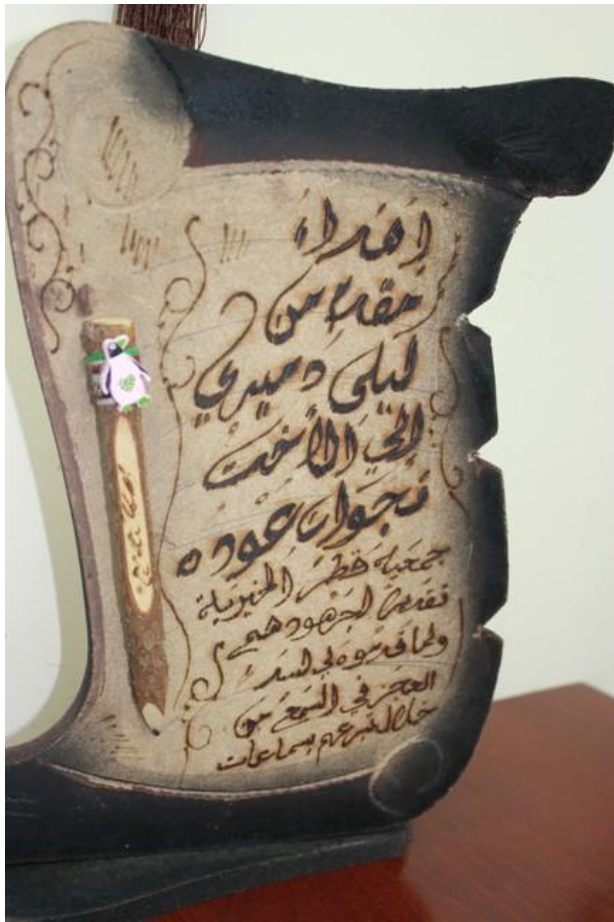 إهداء
مقدم من
ليلى دميري
إلى الأخت
نجوان عوده
جمعية قطر الخيرية
تقديرا لجهودهم
ولما قدموه لي لسد
العجز في السمع من
خلال تبرعهم بسماعات